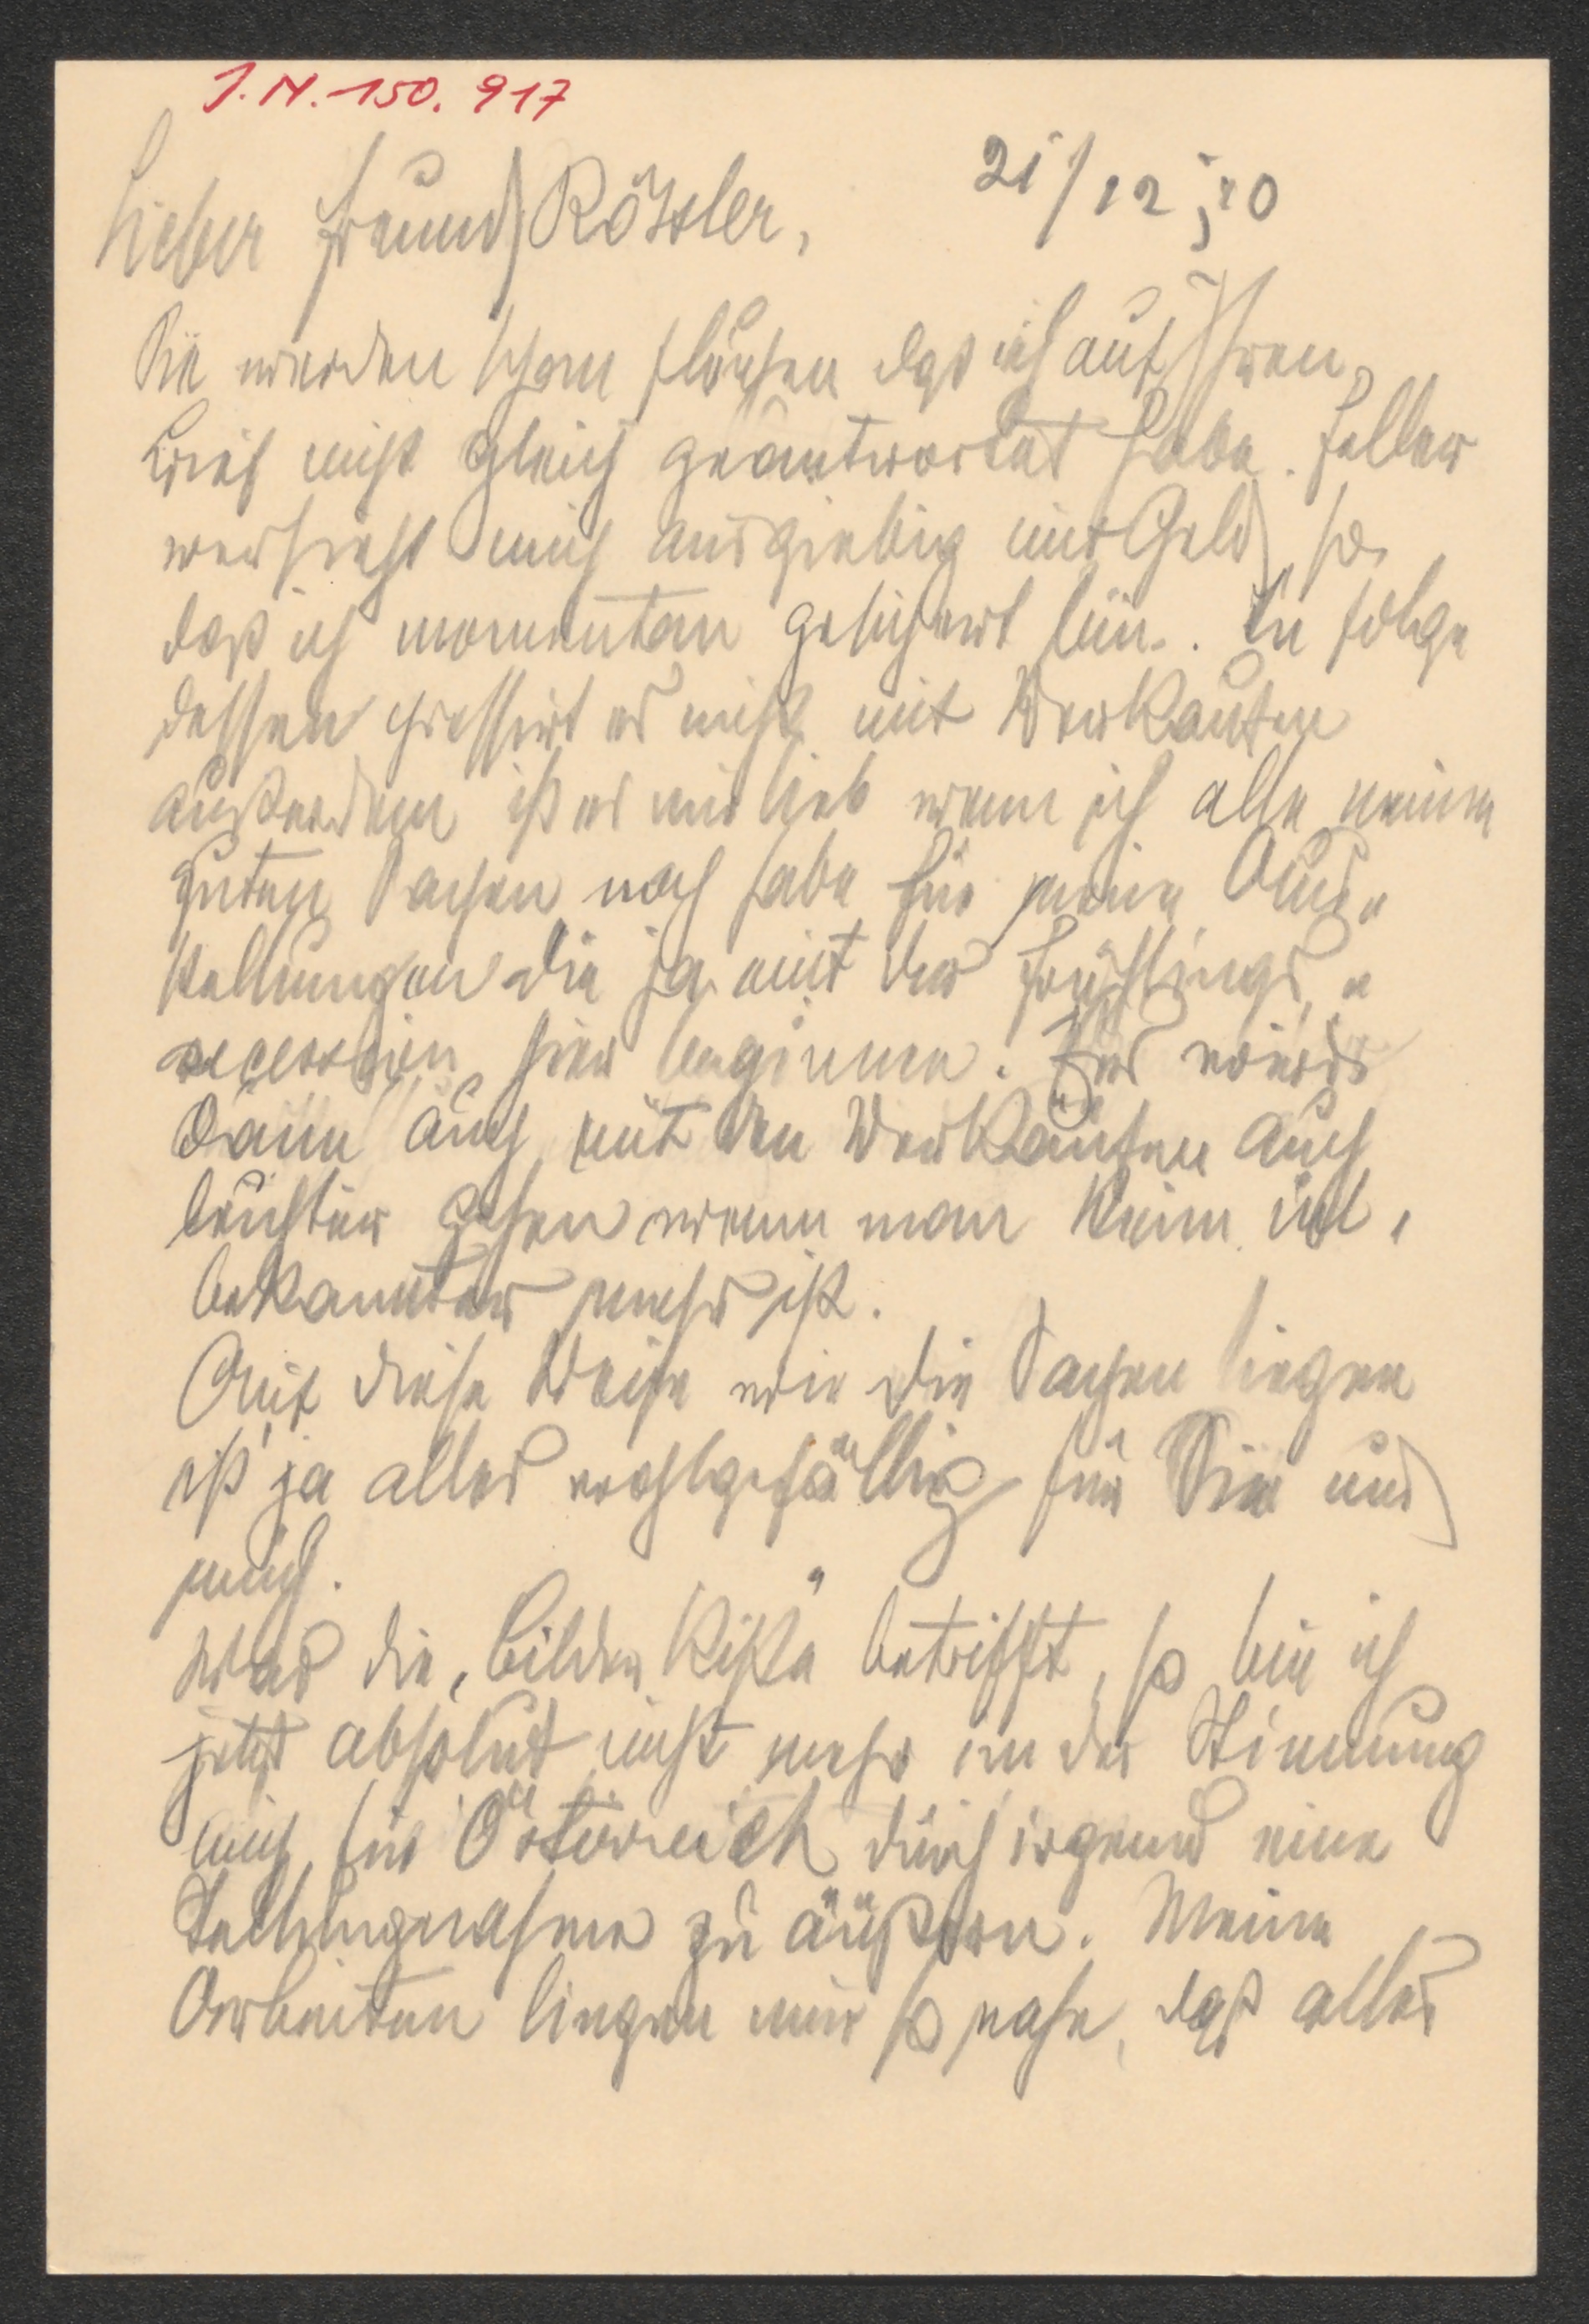 J.N. 150.917
21/12 10
Lieber Freund Rössler,
Sie werden schon fluchen daß ich auf Ihren
Brief nicht gleich geantwortet habe. Feller
versieht mich ausgiebig mit Geld, so
daß ich momentan gesichert bin. In folge
dessen pressirt es nicht mit Verkaufen
außerdem ist es mir lieb wenn ich alle meine
guten Sachen noch habe für meine Aus„
stellungen die ja mit der Frühlings„
secession hier beginnen. Es wird
dann auch mit den Verkäufen auch
leichter gehen wenn man kein Un„
bekannter mehr ist.
Auf diese Weise wie die Sachen liegen
ist ja alles wohlgefällig für Sie und
mich.
Was die „Bilder Kiste“ betrifft, so bin ich
jetzt absolut nicht mehr in der Stimmung
mich für Österreich durch irgend eine
Stellungnahme zu äußern. Meine
Arbeiten liegen mir so nahe, daß alles